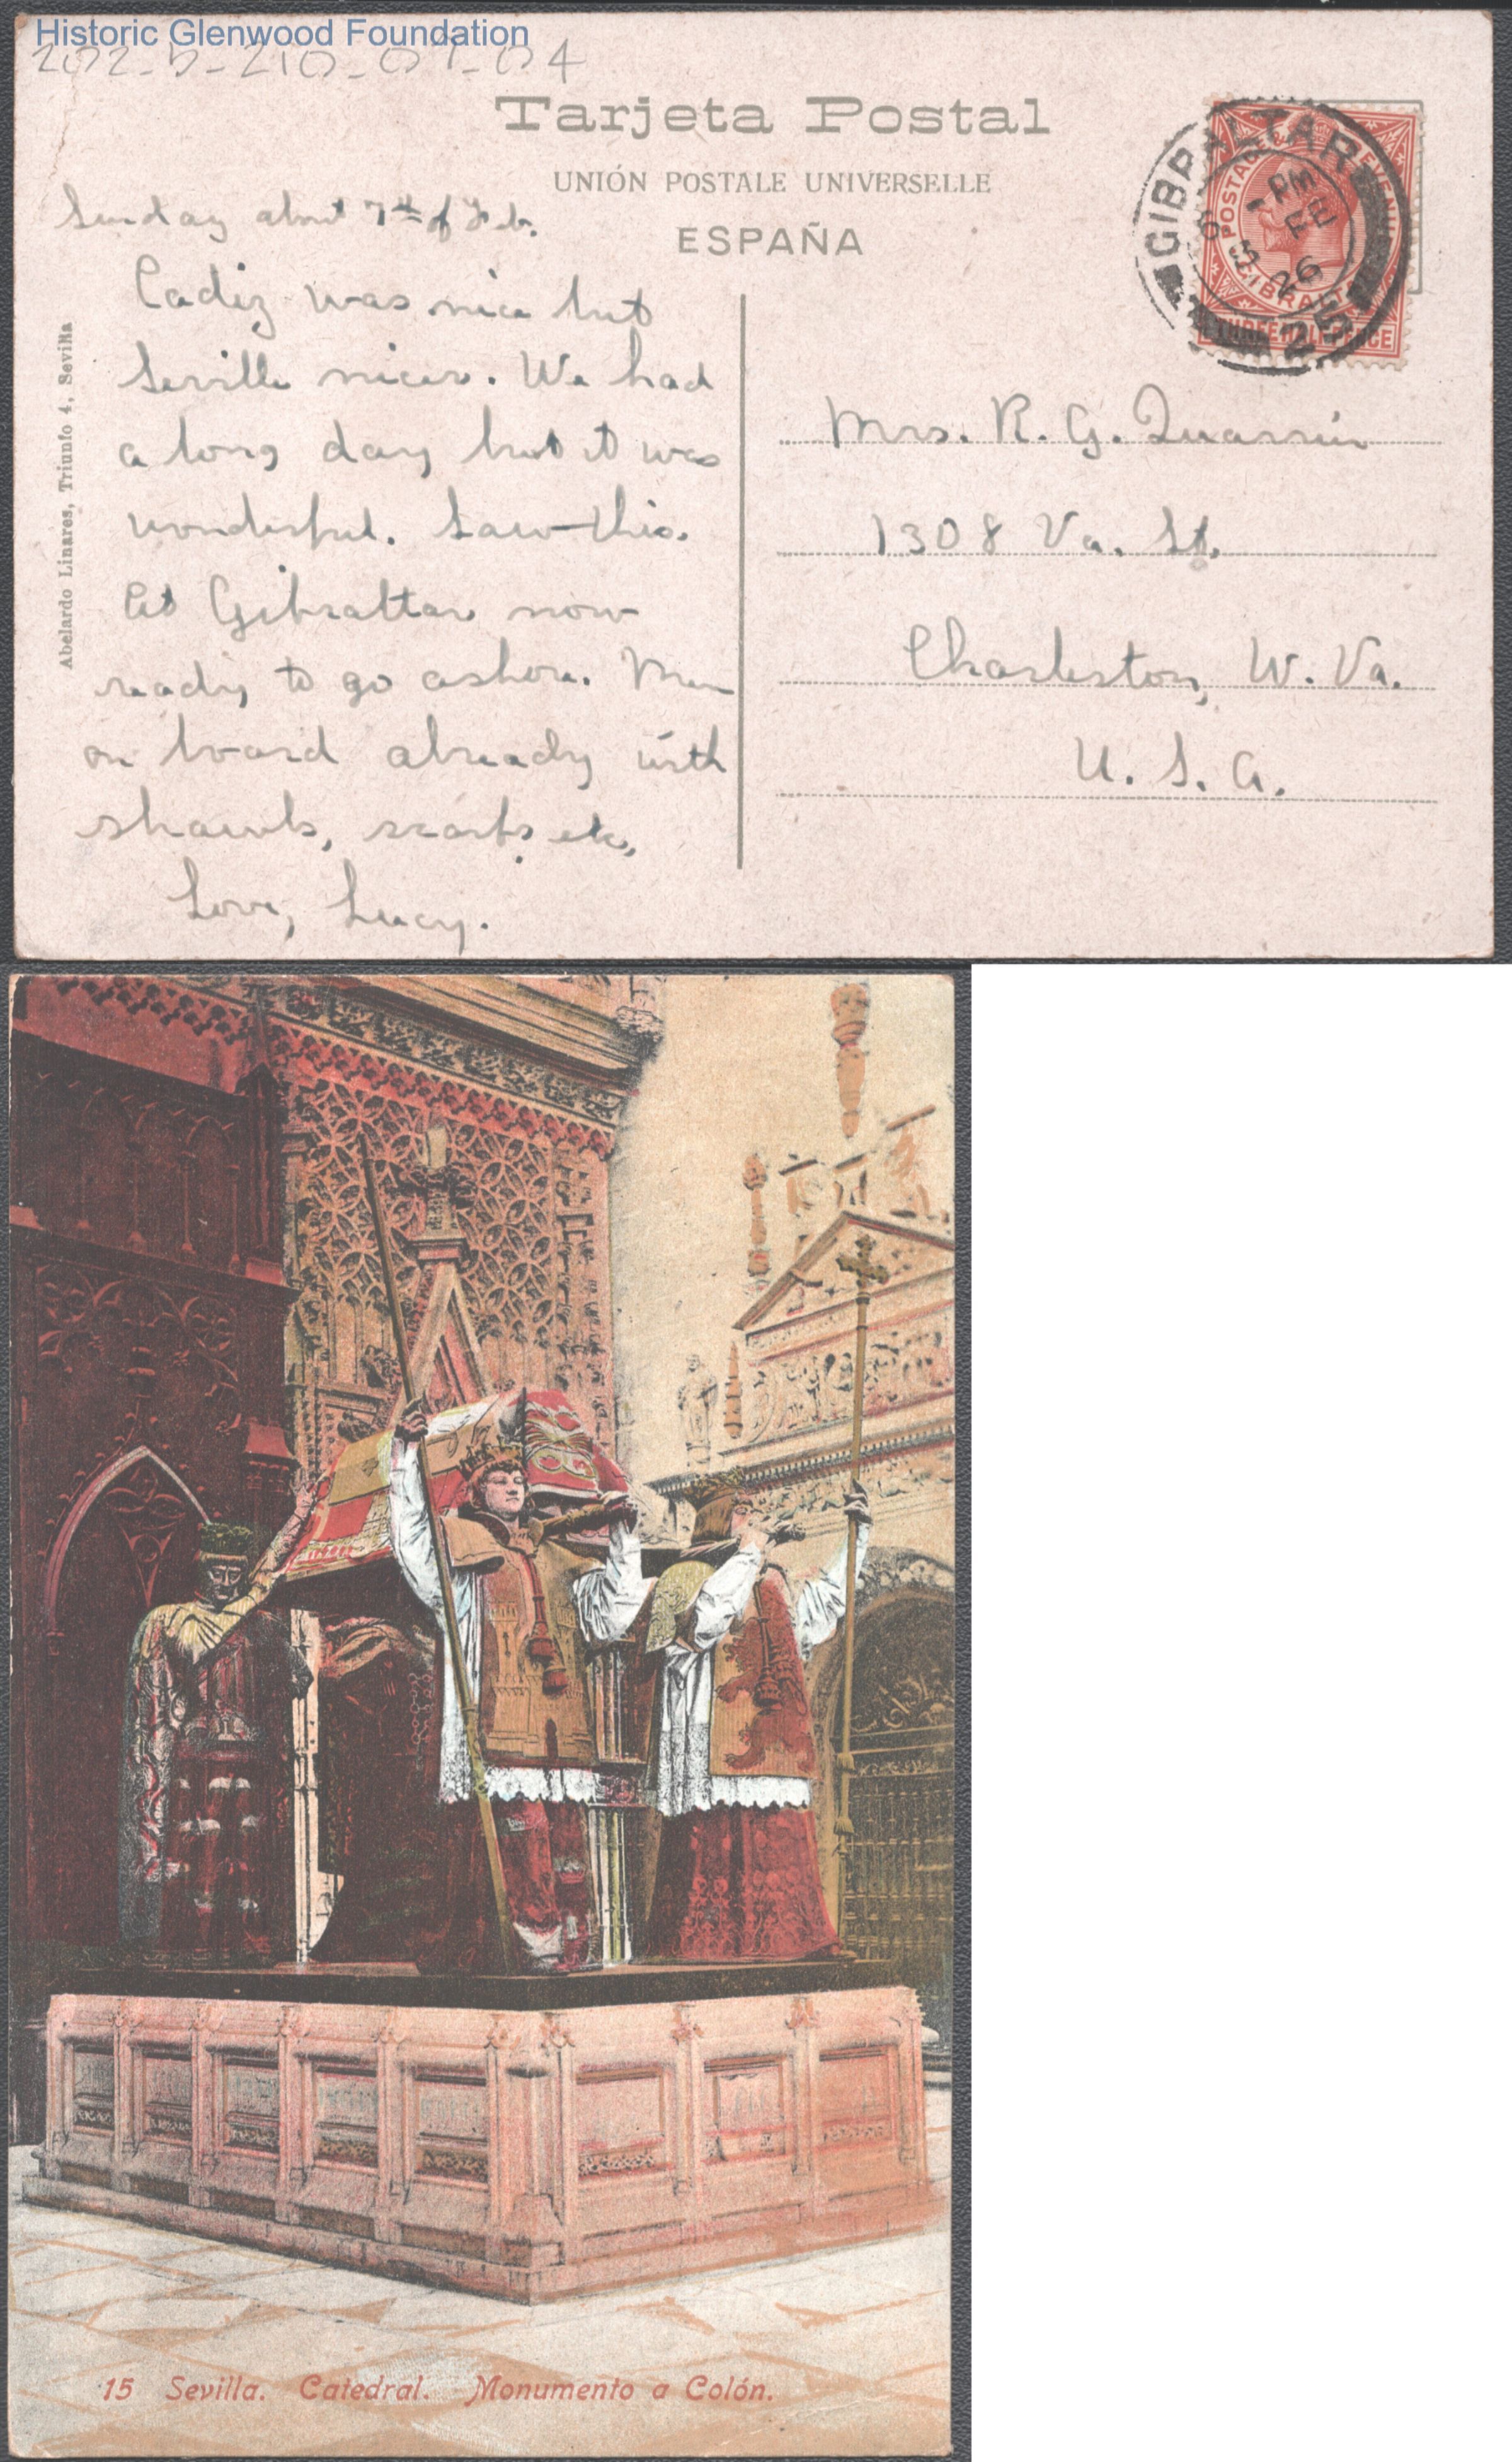 Historic Glenwood Foundation
202-b-210-09-04
Tarjeta Postal
UNIÓN POSTALE UNIVERSELLE
ESPAÑA
GIBRALTAR
6 - PM
5 FE
26
25
POSTAGE & REVENUE
GIBRALTAR
THREE HALF PENCE
Abelardo Linares, Triunfo 4, Sevilla
Sunday about 7th of Feb.
Cadiz was nice but
Seville nicer. We had
a long day but it was
wonderful. Saw this.
At Gibraltar now
ready to go ashore. Men
on board already with
shawls, scarfs, etc,
Love, Lucy.
Mrs. R. G. Quarrier
1308 Va. St.
Charleston, W. Va.
U. S. A.
15 Sevilla. Catedral. Monumento a Colón.